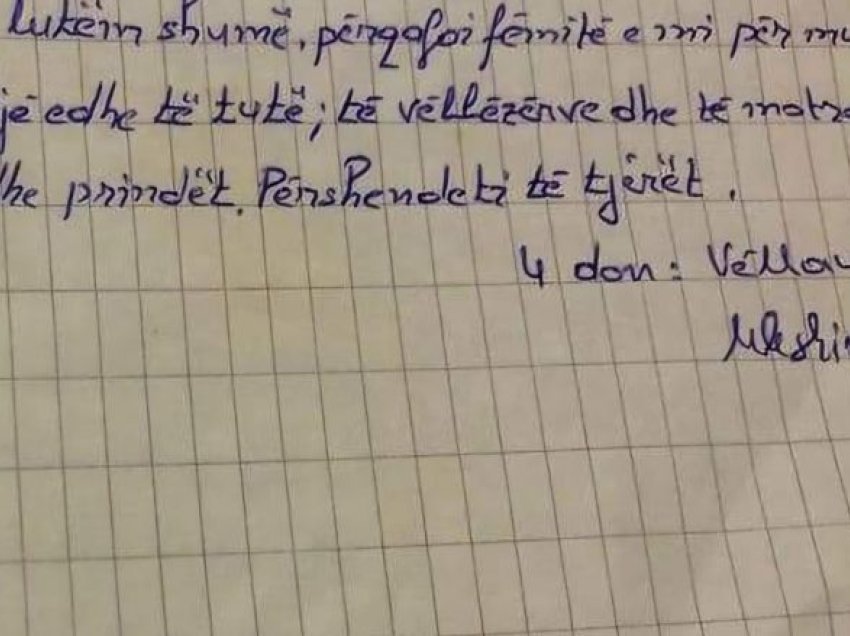 lutëm shumë, përqafoi fëmitë e mi për mu
jë edhe të tutë; të vëllezërve dhe të motra
he prindët. Përshendeti të tjerët.
U don: Vëllau